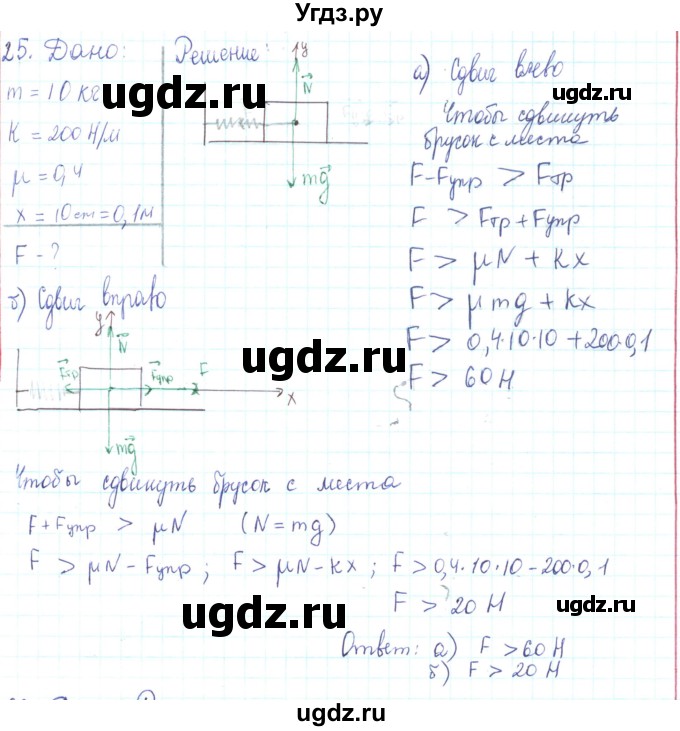 Угдз.ру
25. Дано:
m = 10 кг
K = 200 Н/м
μ = 0,4
x = 10 cm = 0,1 м
F - ?
Решение:
y
N
mg
а) Сдвиг влево
Чтобы сдвинуть
брусок с места
F - Fупр > Fтр
F > Fтр + Fупр
F > μN + kx
F > μmg + kx
F > 0,4·10·10 + 200·0,1
F > 60 Н
б) Сдвиг вправо
y
N
Fтр Fупр F
x
mg
Чтобы сдвинуть брусок с места
F + Fупр > μN (N = mg)
F > μN - Fупр ; F > μN - kx ; F > 0,4·10·10 - 200·0,1
F > 20 Н
Ответ: а) F > 60 Н
б) F > 20 Н
ugdz.ru
ugdz.ru
ugdz.ru
ugdz.ru
ugdz.ru
ugdz.ru
ugdz.ru
ugdz.ru
ugdz.ru